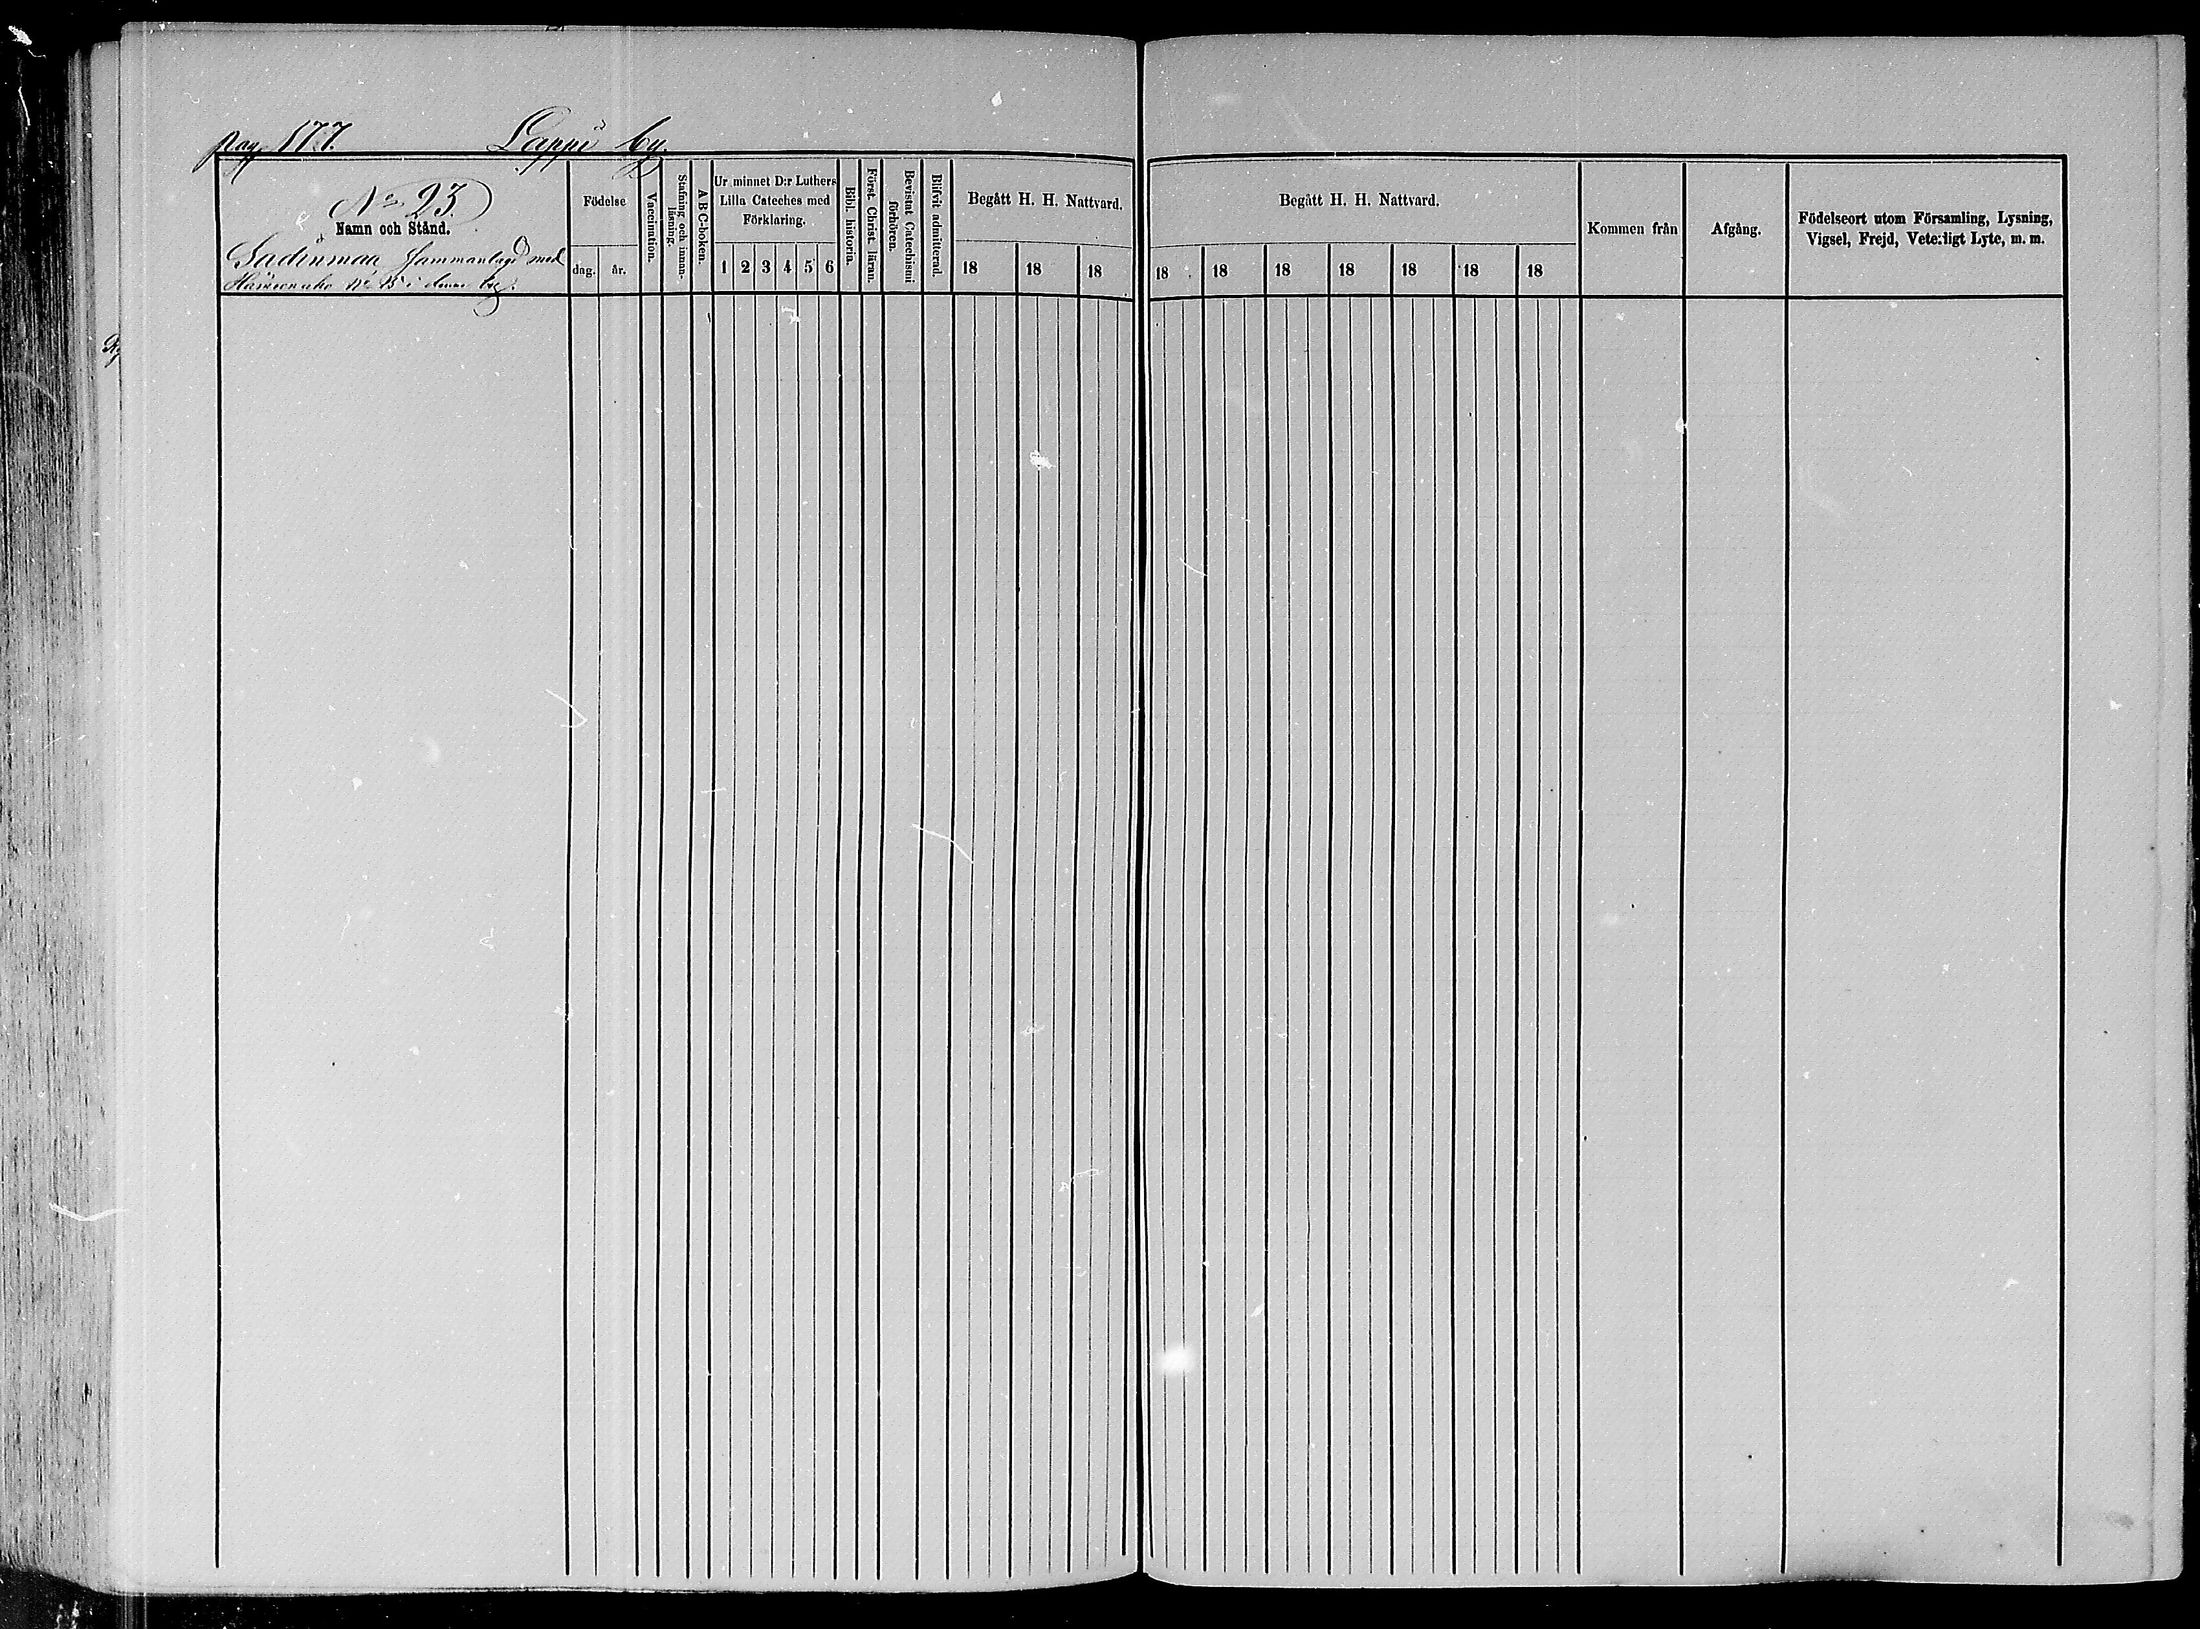 pag. 177.
Lappi by.
No 23.
Namn och Stånd.
sammanlagd med
No 15 i denna by.
Födelse
dag.
år.
Vaccination.
Stafning och innan-
läsning.
A B C-boken.
Ur minnet D:r Luthers
Lilla Cateches med
Förklaring.
1 2 3 4 5 6
Bibl. historia.
Först. Christ. läran.
Bevistat Catechismi
förhören.
Blifvit admitterad.
Begått H. H. Nattvard.
18 18 18
Begått H. H. Nattvard.
18 18 18 18 18 18 18
Kommen från
Afgång.
Födelseort utom Församling, Lysning,
Vigsel, Frejd, Veterligt Lyte, m. m.